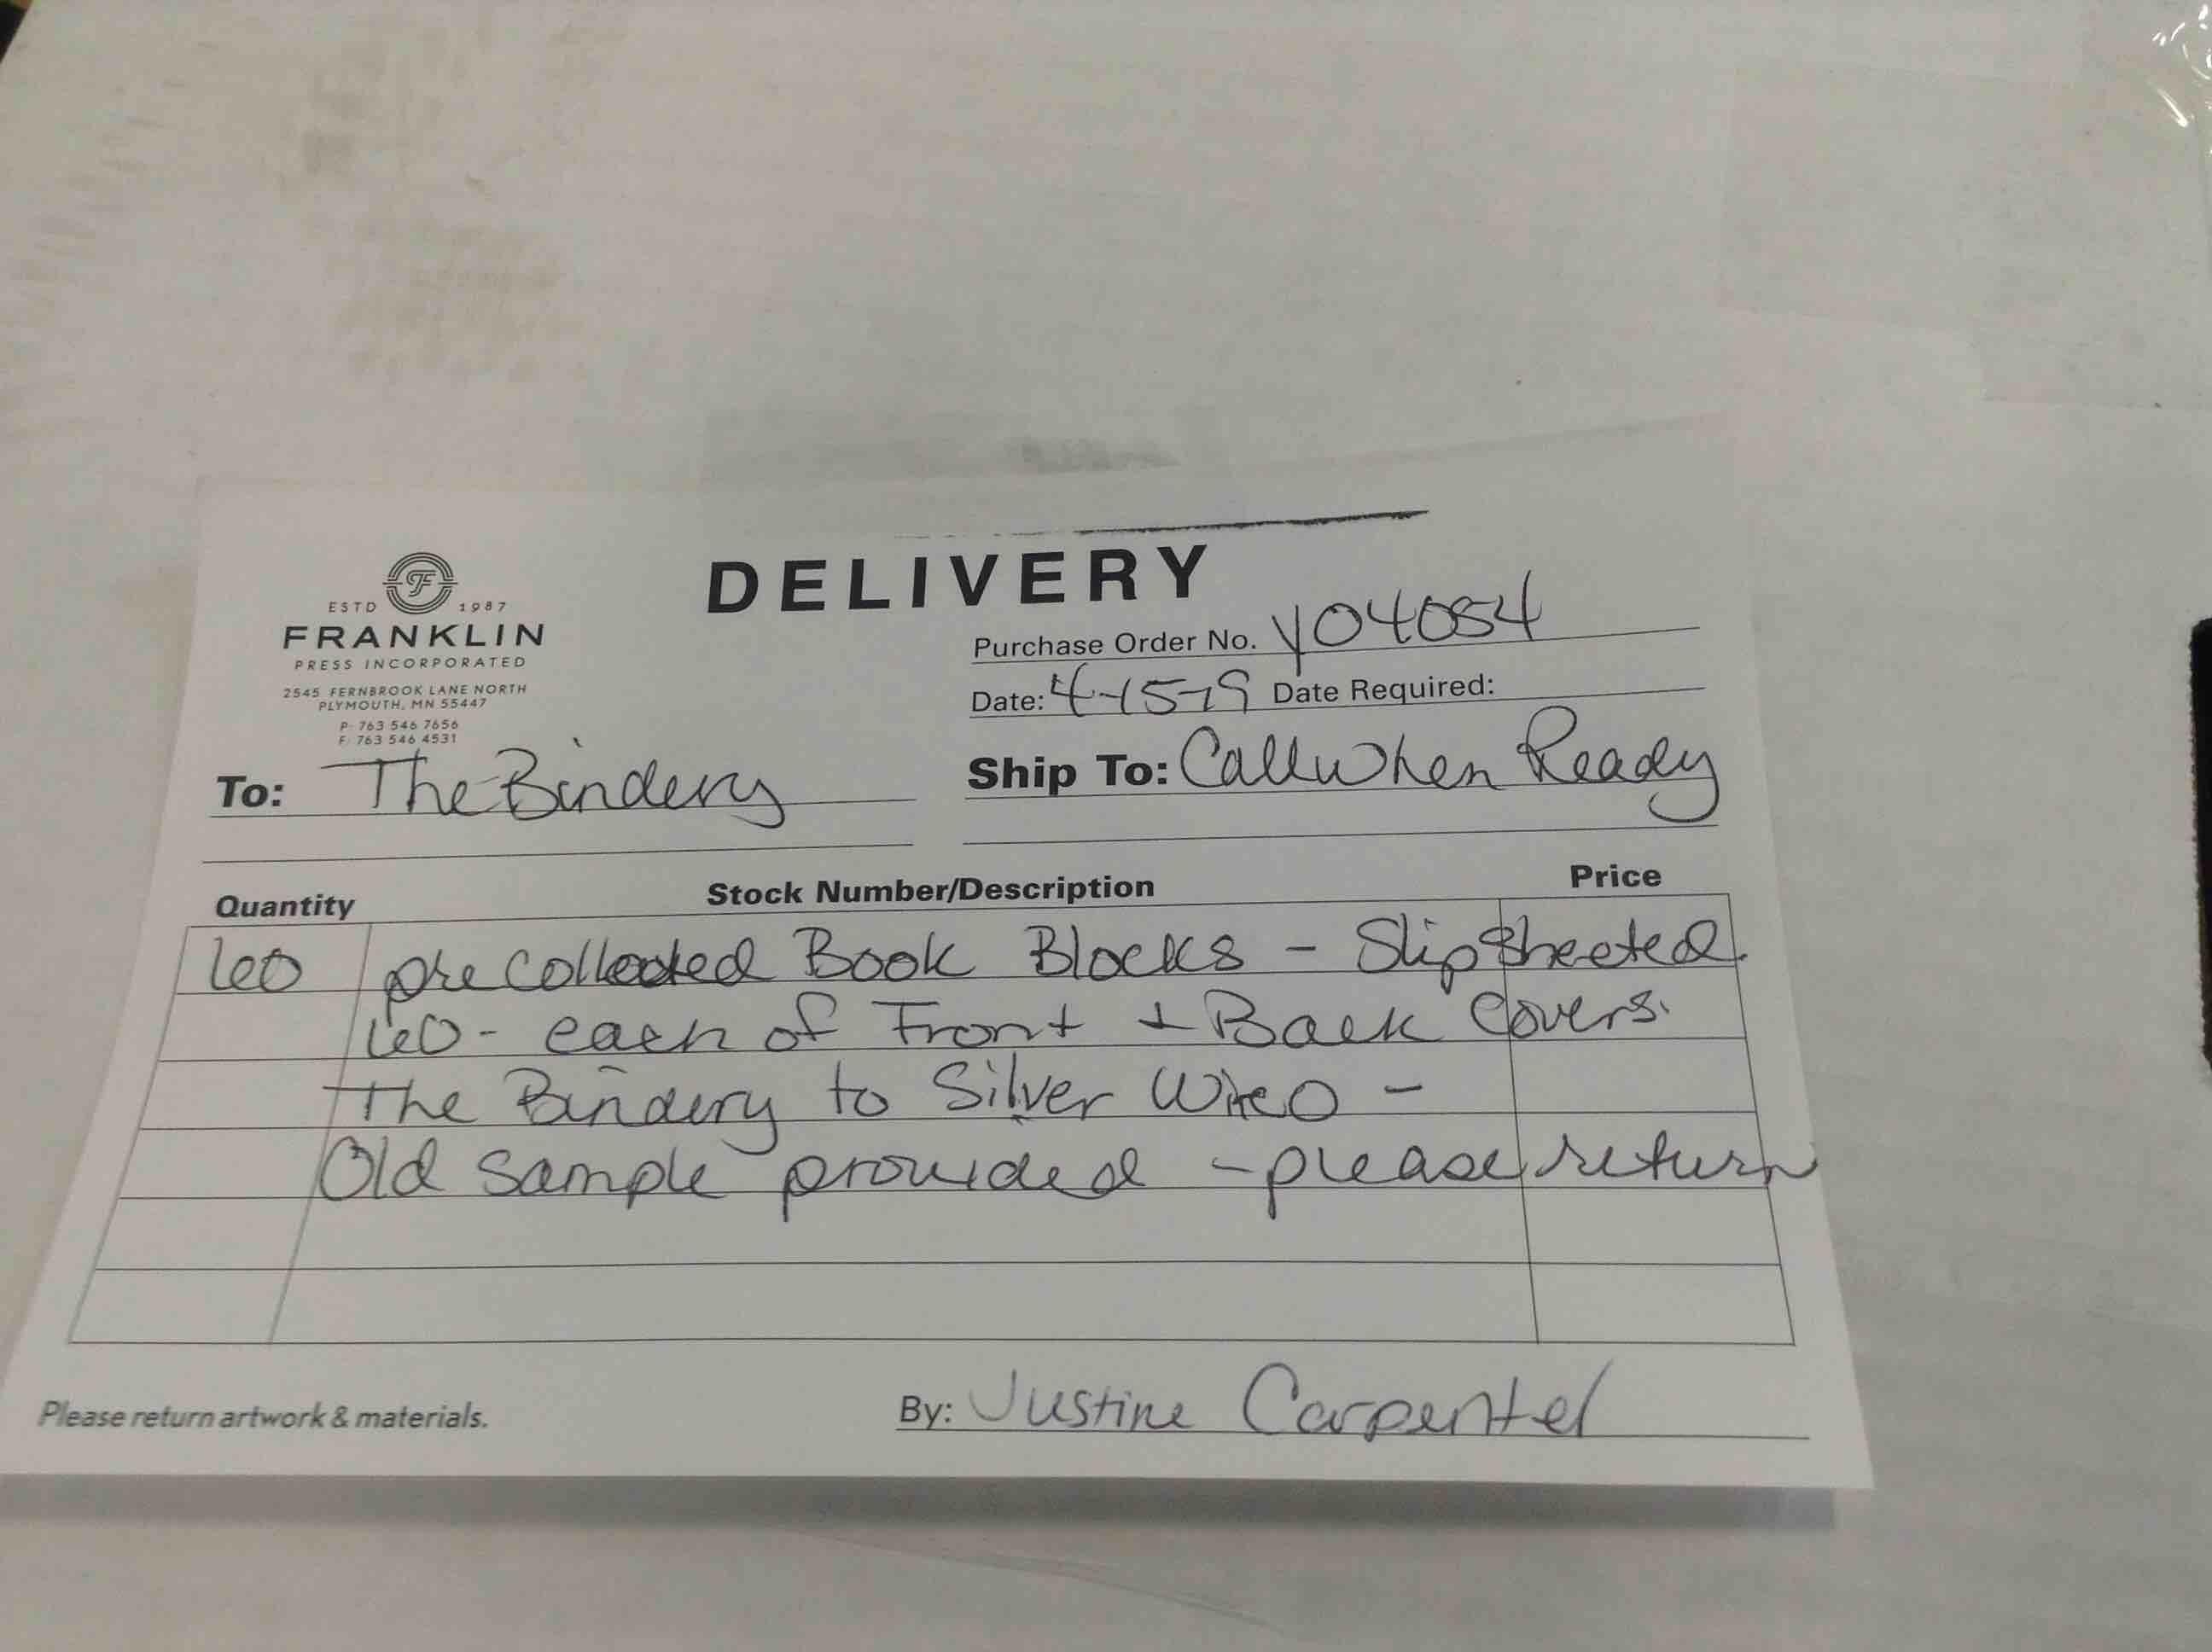 DELIVERY
ESTD 1987
FRANKLIN
PRESS INCORPORATED
2545 FERNBROOK LANE NORTH
PLYMOUTH, MN 55447
P: 763 546 7656
F: 763 546 4531
Purchase Order No. Y04054
Date: 4-15-19 Date Required:
To: The Bindery
Ship To: Call When Ready
Quantity Stock Number/Description Price
60 pre collected Book Blocks - Slip Sheeted.
60 - each of Front + Back Covers.
The Bindery to Silver Wire O -
Old Sample provided - please return
Please return artwork & materials.
By: Justine Carpenter